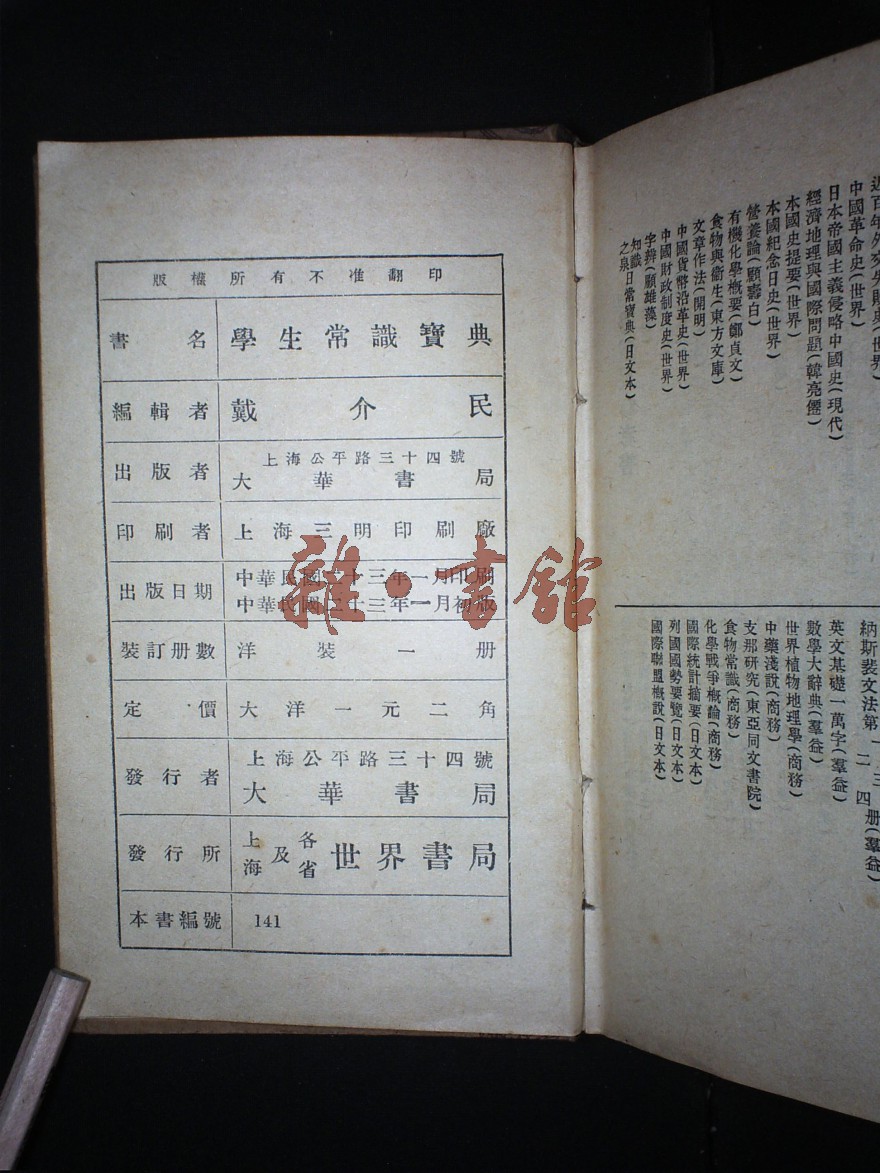 版權所有不准翻印
書名 學生常識寶典
編輯者 戴介民
出版者 上海公平路三十四號
大華書局
印刷者 上海三明印刷廠
出版日期 中華民國二十三年一月印刷
中華民國二十三年一月初版
裝訂册數 洋裝一册
定價 大洋一元二角
發行者 上海公平路三十四號
大華書局
發行所 上海及各省 世界書局
本書編號 141
雜·書館
近百年外交失敗史(世界)
中國革命史(世界)
日本帝國主義侵略中國史(現代)
經濟地理與國際問題(韓亮僊)
本國史提要(世界)
本國紀念日史(世界)
營養論(顧壽白)
有機化學概要(鄭貞文)
食物與衞生(東方文庫)
文章作法(開明)
中國貨幣沿革史(世界)
中國財政制度史(世界)
字辨(顧雄藻)
知識之泉日常寶典(日文本)
納斯裴文法第一二三四册(羣益)
英文基礎一萬字(羣益)
數學大辭典(羣益)
世界植物地理學(商務)
中藥淺說(商務)
支那研究(東亞同文書院)
食物常識(商務)
化學戰爭概論(商務)
國際統計摘要(日文本)
列國國勢要覽(日文本)
國際聯盟概說(日文本)